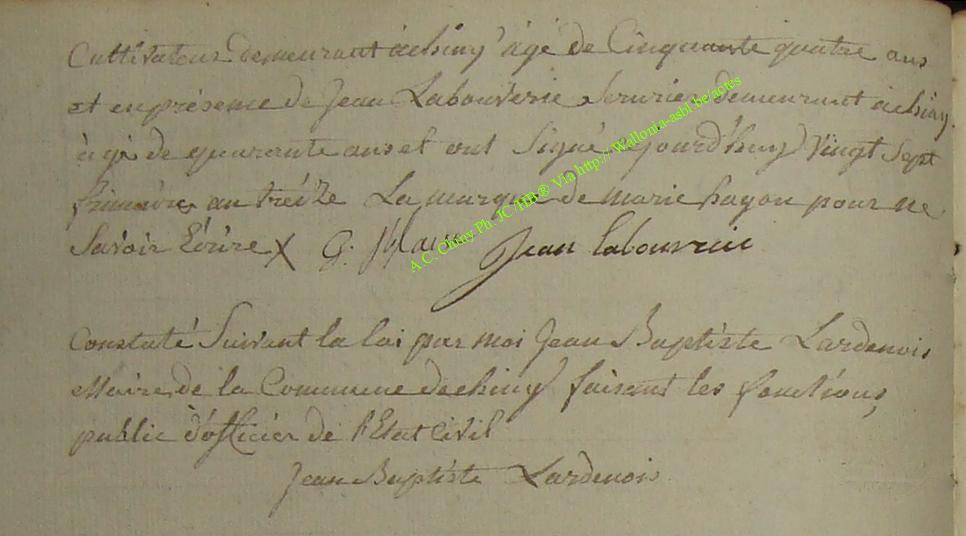 Cultivateur Demeurant àchiny âgé de Cinquante quatre ans
et en présence de Jean Labouverie Serurier demeurant àchiny
âgé de quarante ans et ont Signé Jourd'huy Vingt Sept
frimaire an treize La marque de marie hayon pour ne
Savoir Ecrire X G: Jean labouverie
Constaté Suivant la loi par moi Jean Baptiste Lardenois
Maire de la Commune dechiny faisant les fonctions
public d'officier de l'Etat Civil
Jean Baptiste Lardenois
A.C. Chiny Ph. JC /HB® Via http:// Wallonia-asbl.be/actes